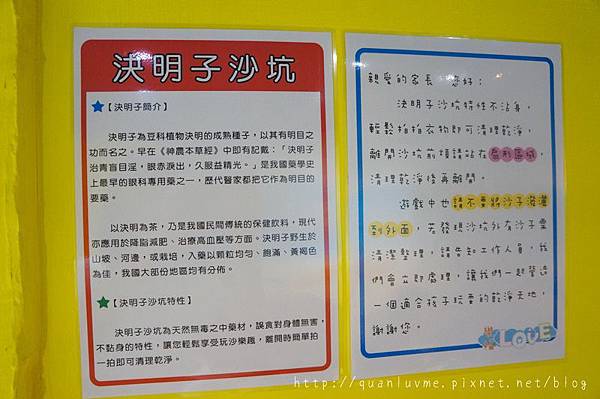 決明子沙坑
【決明子簡介】
決明子為豆科植物決明的成熟種子，以其有明目之
功而名之。早在《神農本草經》中即有記載：「決明子
治青盲目淫，眼赤淚出，久服益精光。」是我國藥學史
上最早的眼科專用藥之一，歷代醫家都把它作為明目的
要藥。
以決明為茶，乃是我國民間傳統的保健飲料，現代
亦應用於降脂減肥、治療高血壓等方面。決明子野生於
山坡、河邊，或栽培，入藥以顆粒均勻、飽滿、黃褐色
為佳，我國大部份地區均有分佈。
【決明子沙坑特性】
決明子沙坑為天然無毒之中藥材，誤食對身體無害，
不黏身的特性，讓您輕鬆享受玩沙樂趣，離開時簡單拍
一拍即可清理乾淨。
親愛的家長 您好：
決明子沙坑特性不沾身，
輕鬆拍拍衣物即可清理乾淨，
離開沙坑前煩請站在扇形區域，
清理乾淨後再離開。
遊戲中也請不要將沙子潑灑
到外面，若發現沙坑外有沙子需
清潔整理，請告知工作人員，我
們會立即處理，讓我們一起營造
一個適合孩子玩耍的乾淨天地，
謝謝您。
LOVE
http://quanluvme.pixnet.net/blog